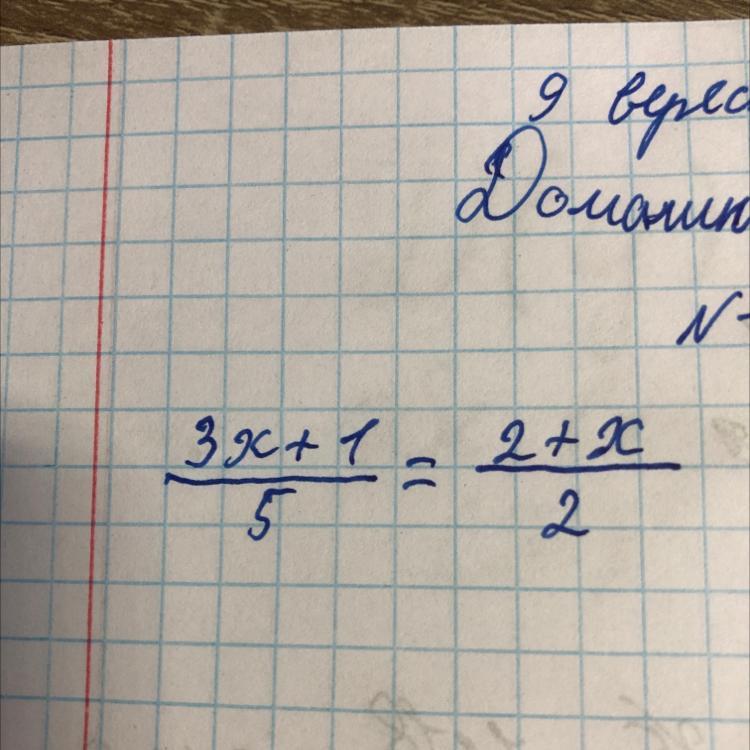 9 верес
Домашн
N
3x + 1 / 5 = 2 + x / 2